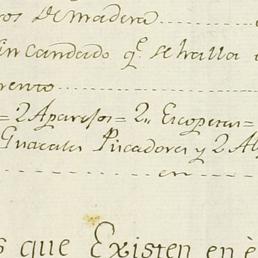 os de madera
in candado q.e se halla
= 2 Aparejos = 2,, Escoperas =
Guacales Pescadores y 2
en
s que Existen en è